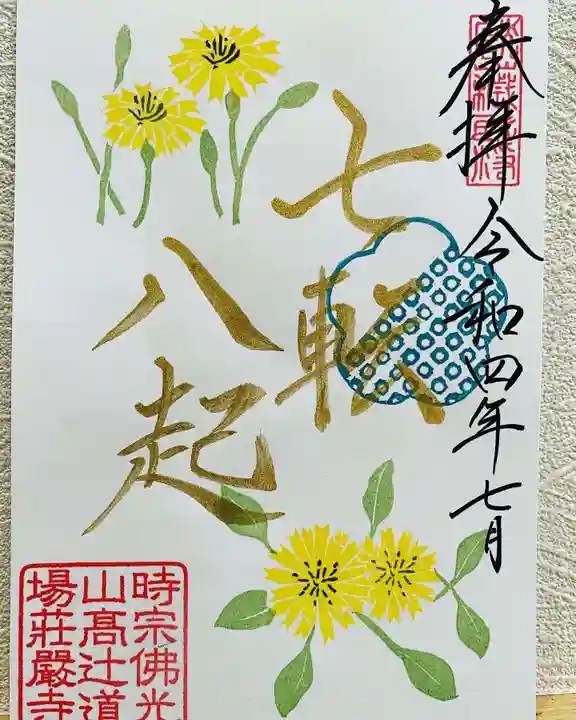 奉拝 令和四年七月
七転
八起
時宗佛光
山髙辻道
場荘嚴寺